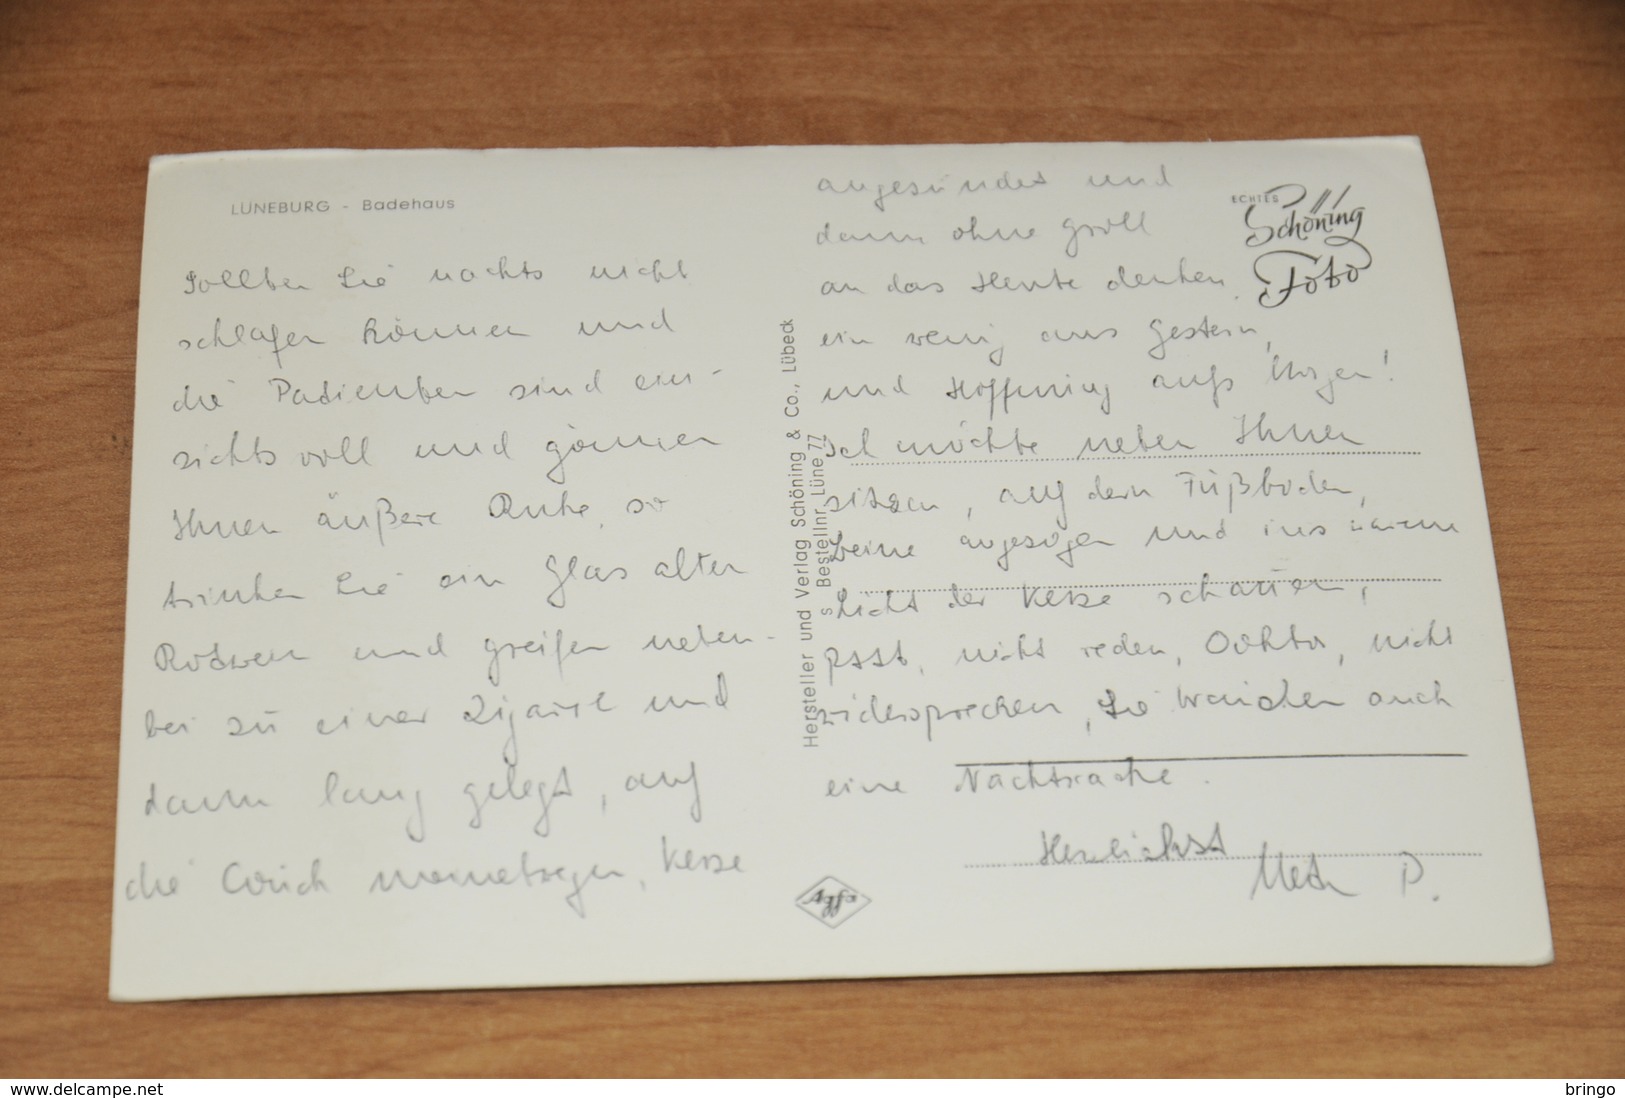 LÜNEBURG - Badehaus
Sollten Sie nachts nicht
schlafen können und
die Patienten sind ein-
sichtsvoll und gönnen
Ihnen äußere Ruhe, so
trinken Sie ein Glas alten
Rotwein und greifen neben-
bei zu einer Zigarre und
dann lang gelegt, auf
die Couch meinetwegen, Kerze
angezündet und
dann ohne Groll
an das Heute denken,
ein wenig ans Gestern,
und Hoffnung aufs Morgen!
Ich möchte neben Ihnen
sitzen, auf dem Fußboden,
Beine angezogen und ins warme
Licht der Kerze schauen,
psst, nicht reden, Doktor, nicht
widersprechen, Sie brauchen auch
eine Nachtwache.
Herzlichst
P.
ECHTES
Schöning
Foto
Hersteller und Verlag Schöning & Co., Lübeck
s Bestellnr. Lüne 77
Agfa
www.delcampe.net
bringo